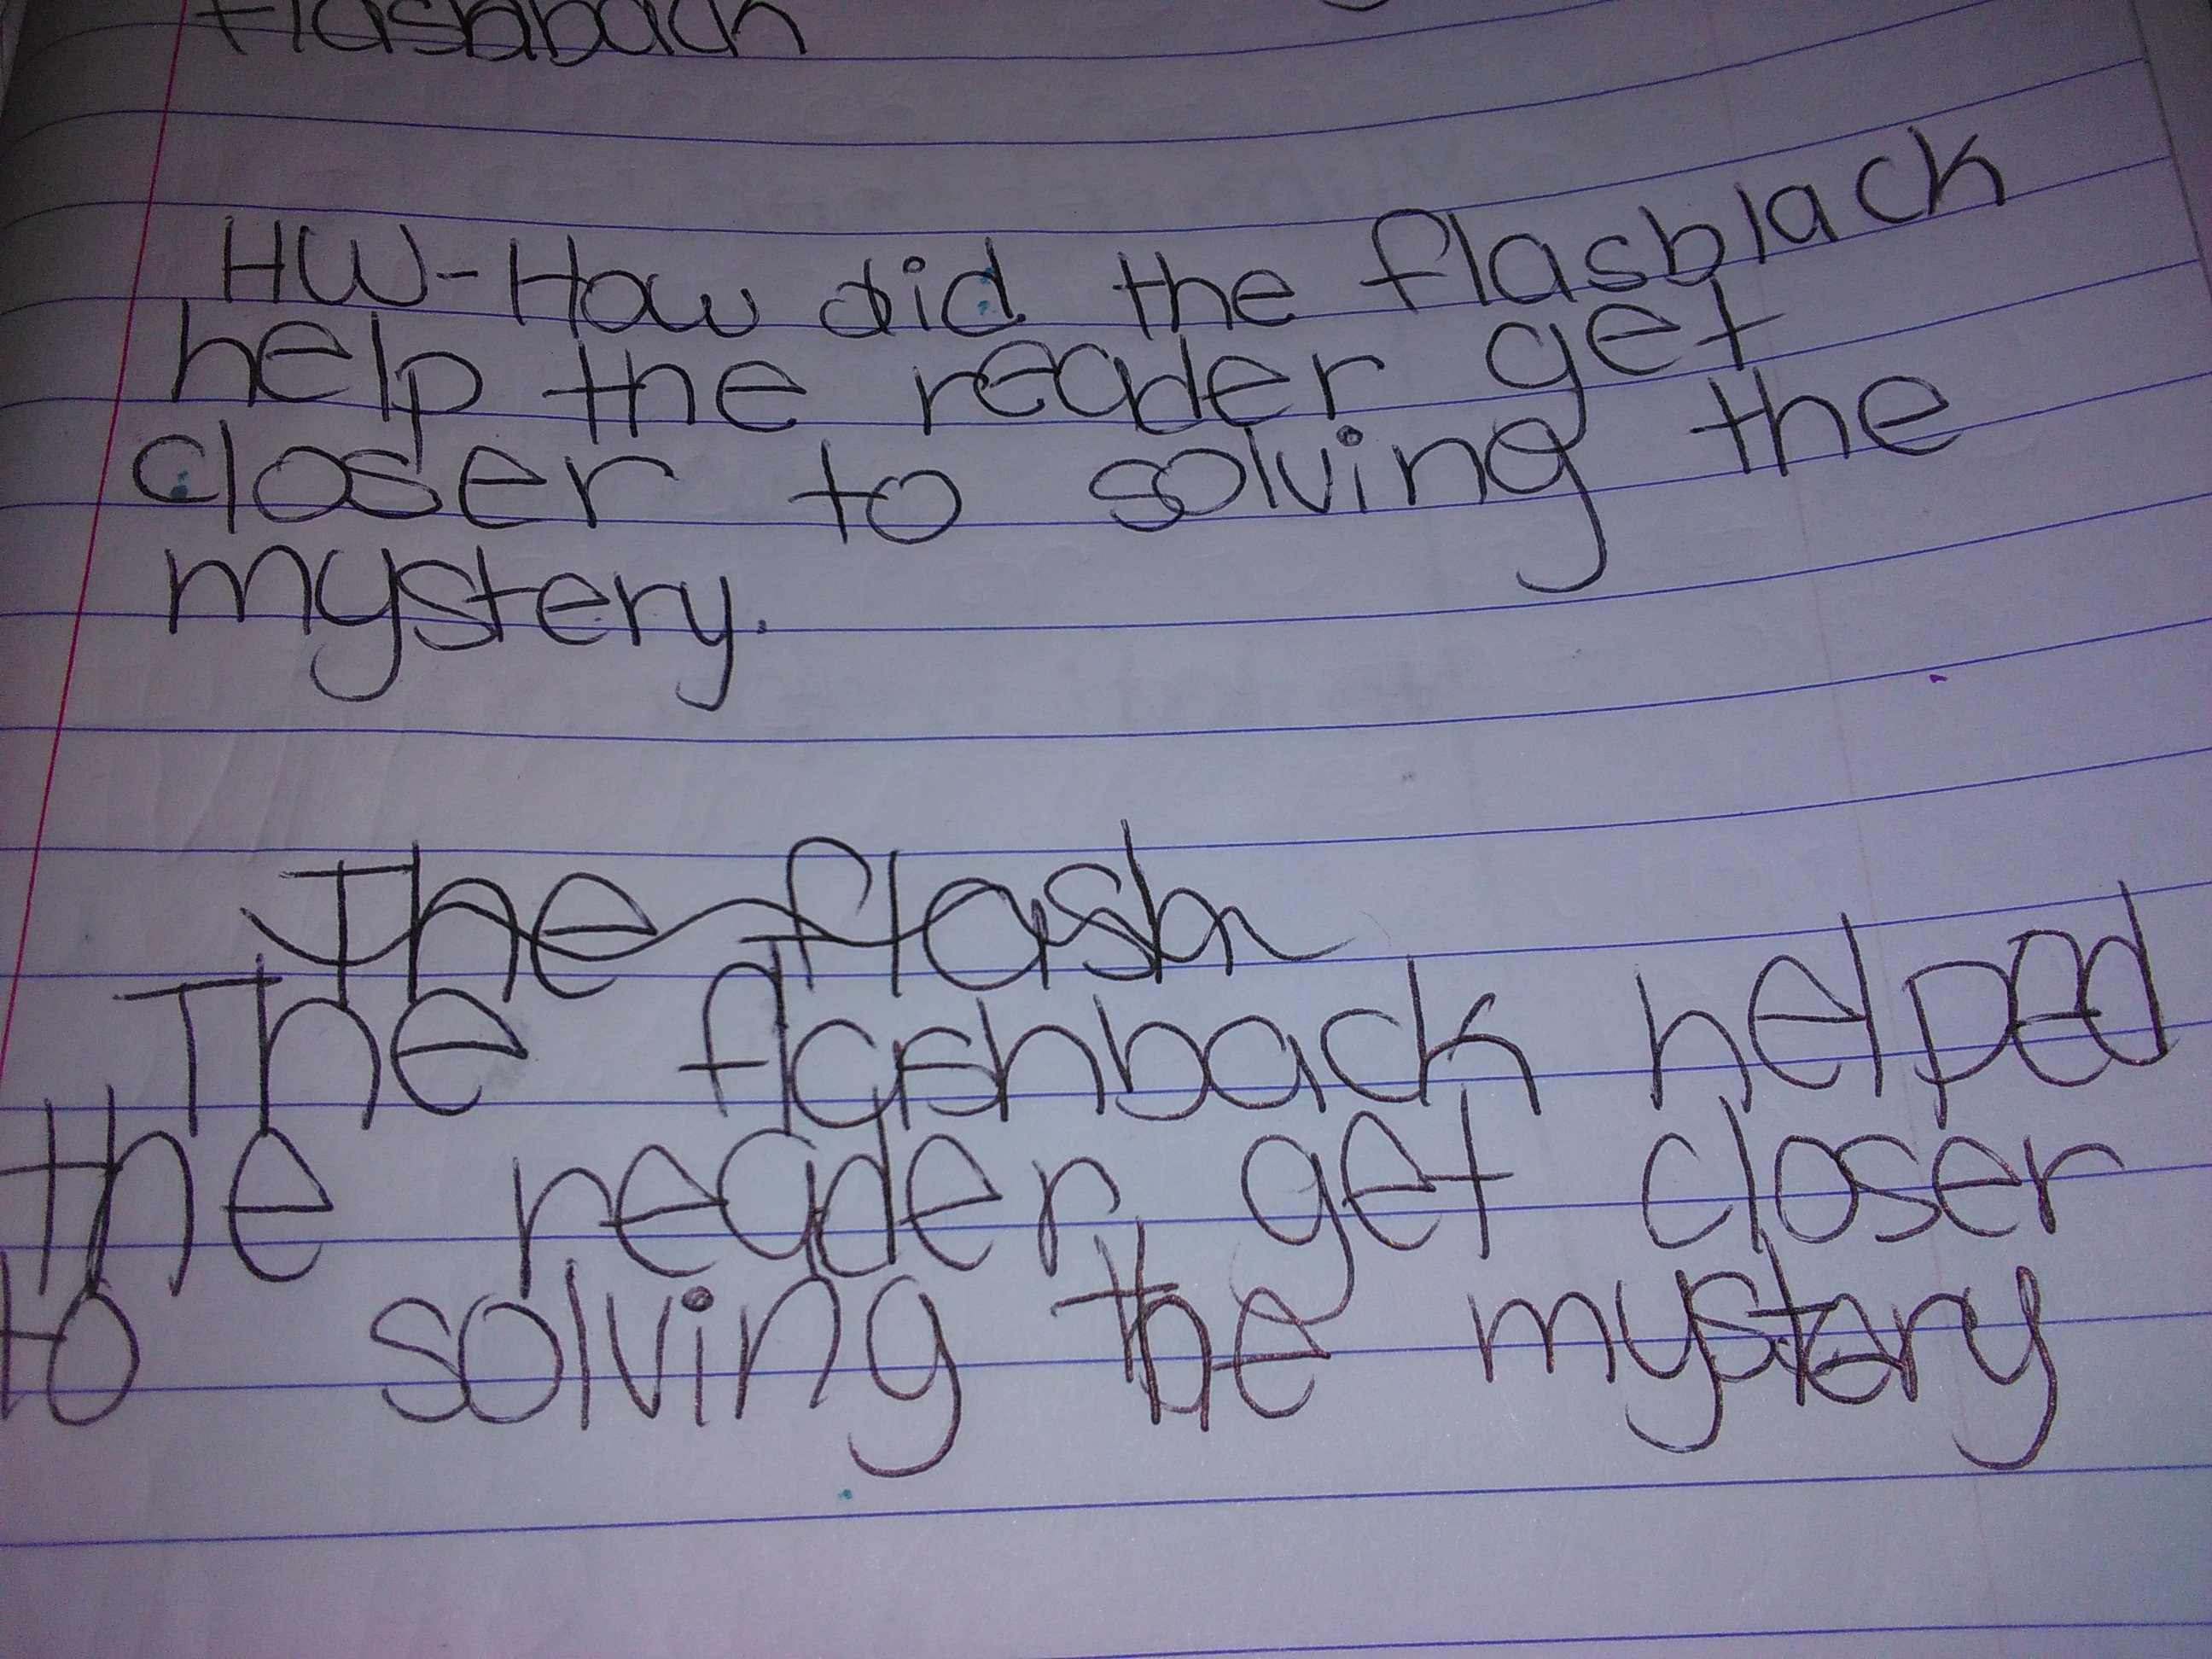 flashback
HW-How did the flasblack
help the reader get
closer to solving the
mystery.
The flash
The flashback helped
the reader get closer
to solving the mystery